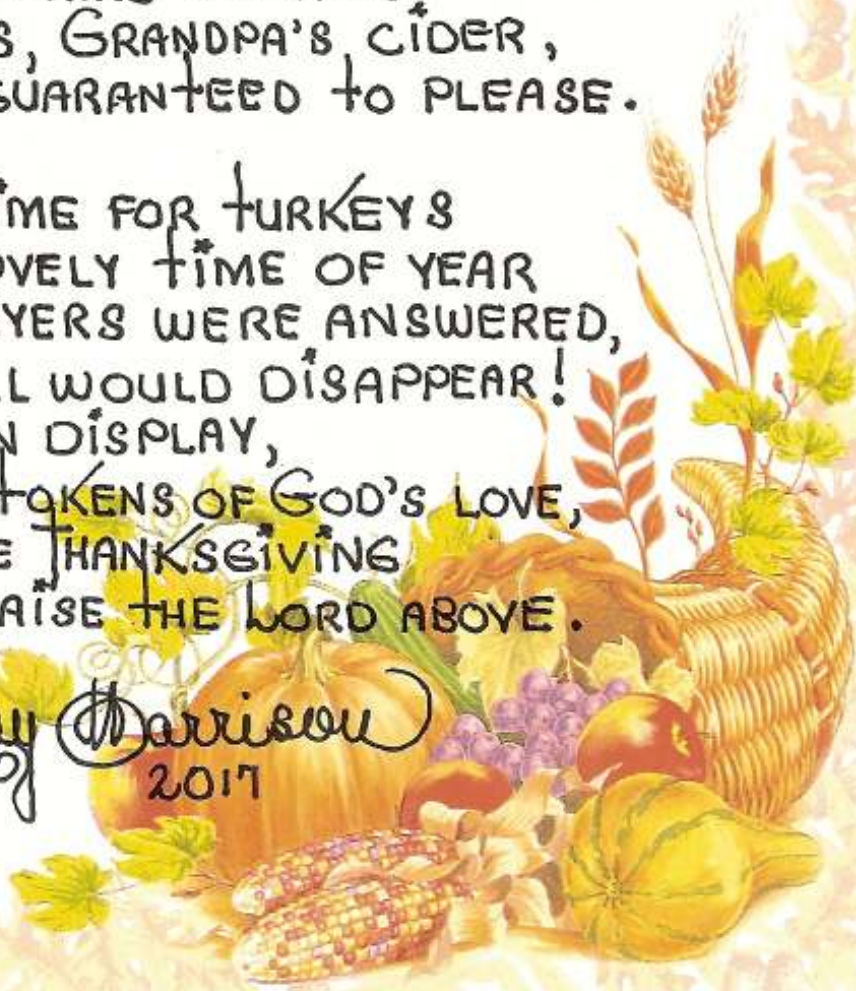 S, GRANDPA'S CiDER,
GUARANtEED to PLEASE.
iME FOR tURKEYS
OVELY tiME OF YEAR
YERS WERE ANSWERED,
L WOULD DiSAPPEAR!
N DiSPLAY,
tOKENS OF GOD'S LOVE,
E tHANKSGiViNG
AiSE tHE LORD ABOVE.
y Harrison
2017